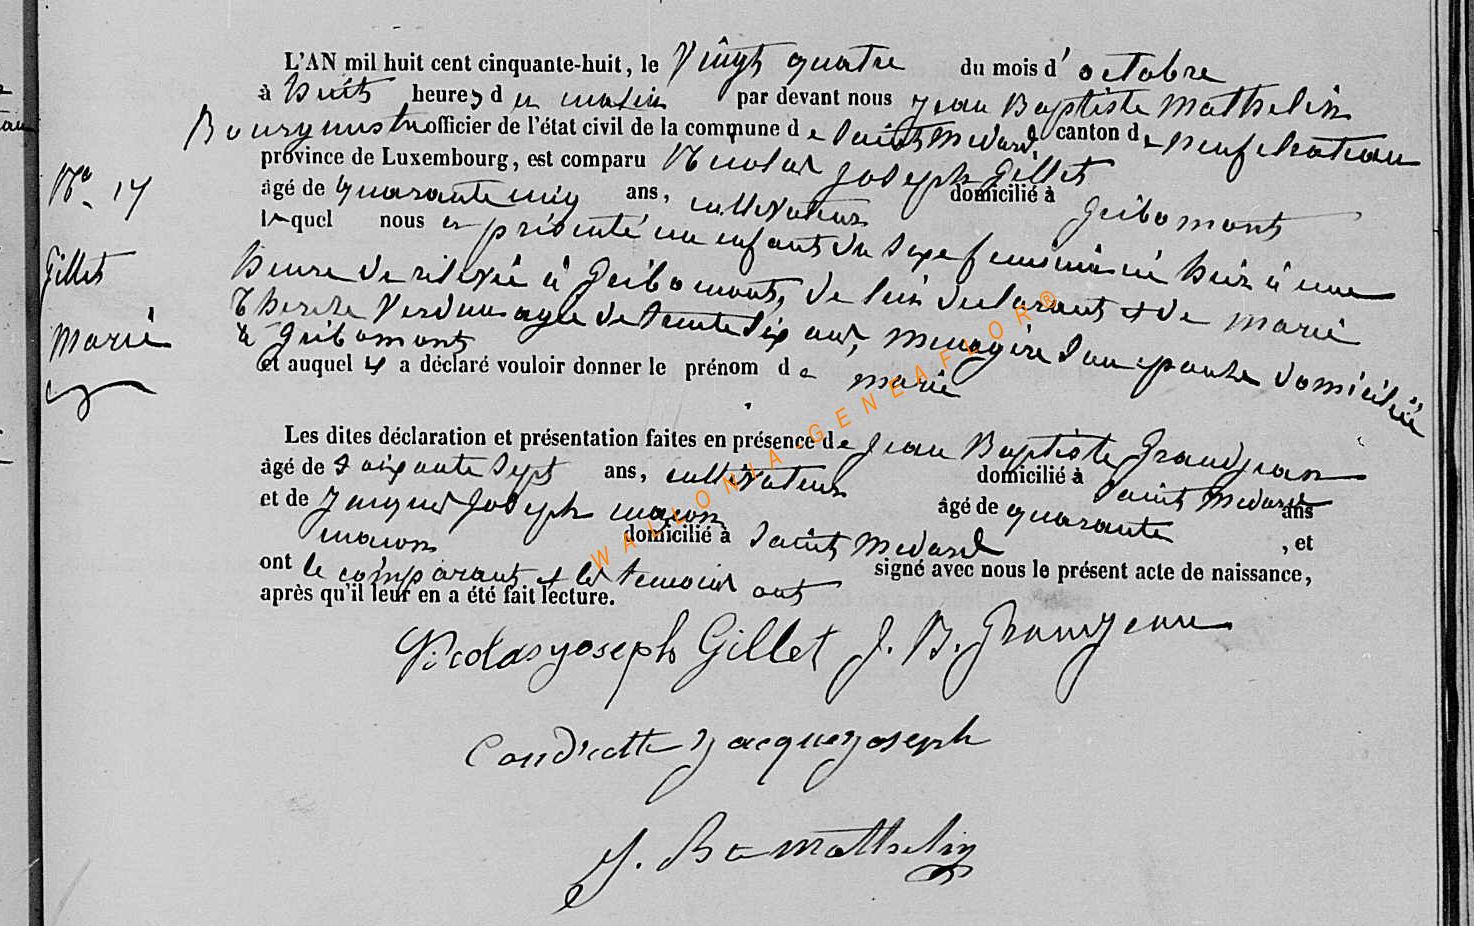 L'AN mil huit cent cinquante-huit, le Vingt quatre du mois d' octobre
à huit heures du matin par devant nous Jean Baptiste Mathelin
Bourgmestre officier de l'état civil de la commune de Saint Medard canton de neufchateau
province de Luxembourg, est comparu Nicolas Joseph Gillet
No. 17
âgé de quarante cinq ans, cultivateur domicilié à Gribomont
lequel nous a présenté un enfant du sexe féminin né hier à une
Gillet
heure de rélevée à Gribomont, de lui déclarant & de marie
Therese ans, menagère son épouse domiciliée
Marie
à Gribomont
et auquel il a déclaré vouloir donner le prénom de marie
Les dites déclaration et présentation faites en présence de Jean Baptiste Grandjean
âgé de Soixante Sept ans, cultivateur domicilié à Saint Medard
et de Jacques Joseph maçon âgé de quarante ans
maçon domicilié à Saint Medard , et
ont le comparant & les temoins ont signé avec nous le présent acte de naissance,
après qu'il leur en a été fait lecture.
Nicolas joseph Gillet J. B. Grandjean
jacque joseph
J. Bte Mathelin
WALLONIA GENEAFLOR®